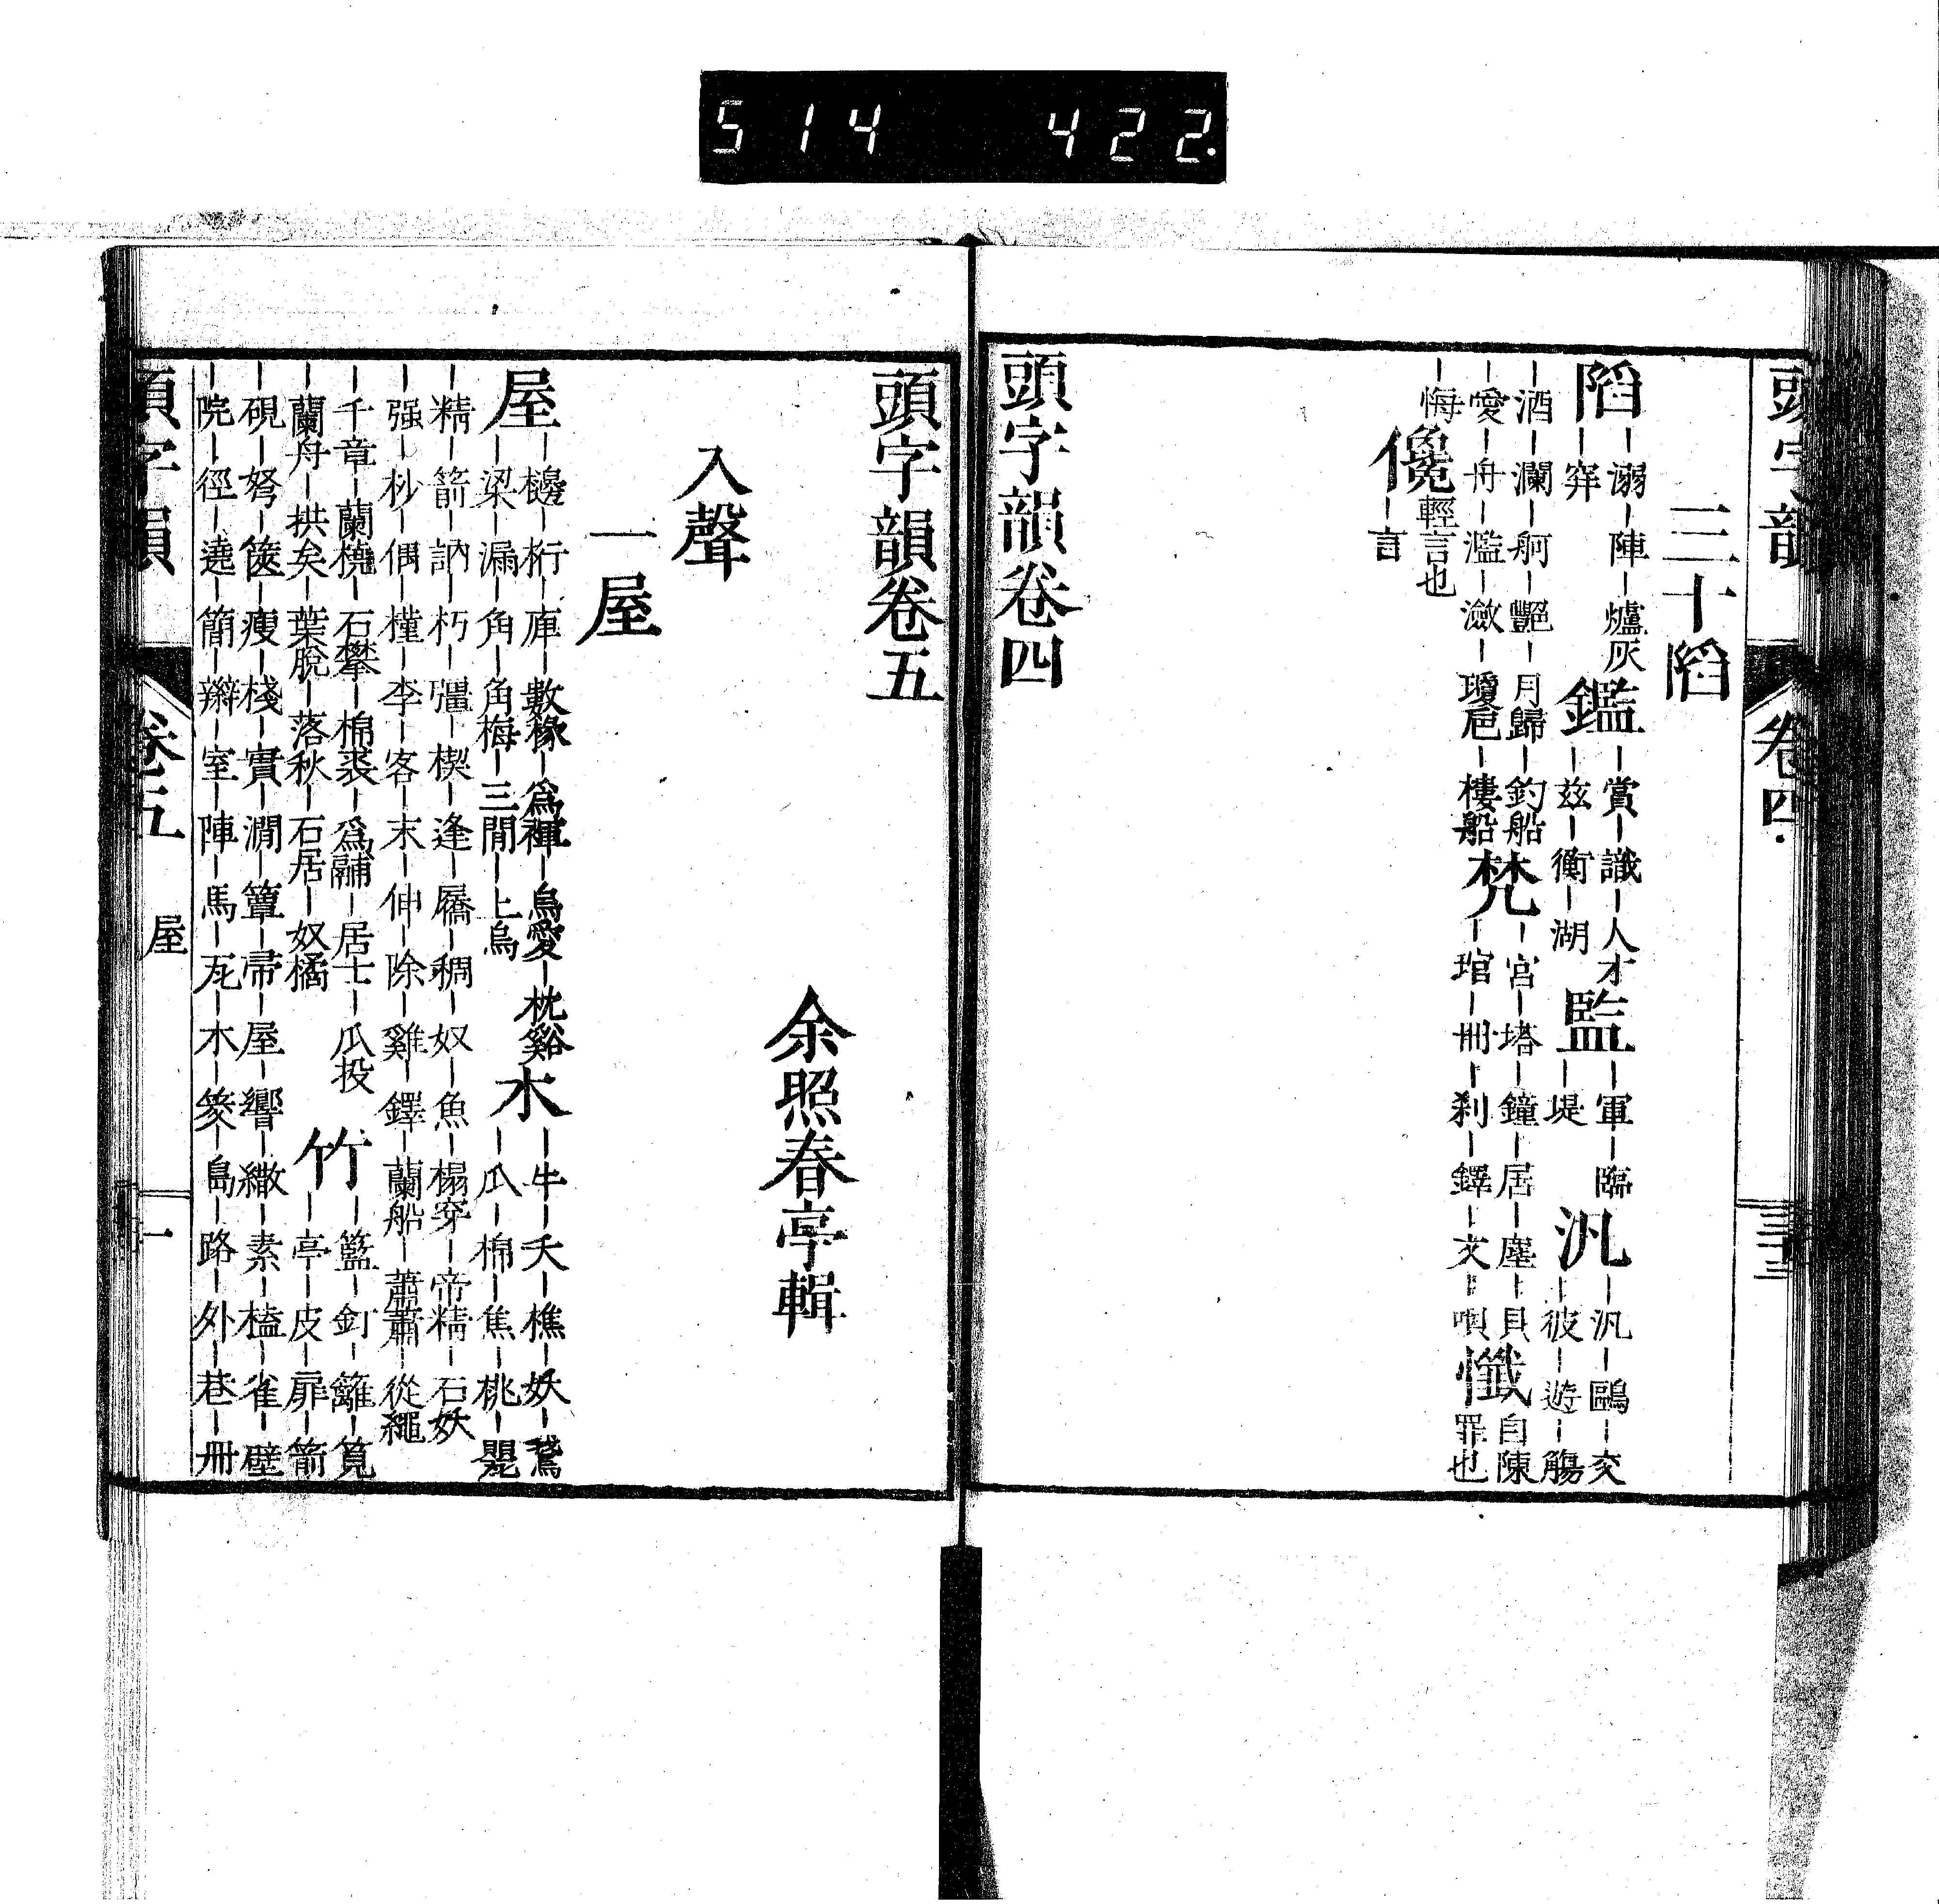 514 422.
三十陷
陷｜溺｜陣｜爐灰
｜穽
鑑｜賞｜識｜人才
｜玆｜衡｜湖
監｜軍｜臨
｜堤
汎｜汎｜鷗｜交
｜彼｜遊｜觴
｜酒｜瀾｜舸｜豔｜月歸｜釣船
｜愛｜舟｜濫｜瀲｜瓊巵｜樓船
梵｜宮｜塔｜鐘｜居｜塵｜貝
｜琯｜冊｜刹｜鐸｜文｜唄
懺自陳罪也
｜悔
儳輕言也｜言
頭字韻卷四
頭字韻卷五
余照春亭輯
入聲
一屋
屋｜櫋｜桁｜庳｜數椽｜爲褌｜烏愛｜枕谿
｜梁｜漏｜角｜角梅｜三間｜上烏
木｜牛｜夭｜樵｜妖｜鵞
｜瓜｜棉｜焦｜桃｜甖
｜精｜箭｜訥｜朽｜彊｜楔｜逢｜屩｜稠｜奴｜魚｜榻穿｜帝精｜石妖
｜强｜杪｜偶｜槿｜李｜客｜末｜伸｜除｜雞｜鐸｜蘭船｜蕭蕭｜從繩
｜千章｜蘭橈｜石攀｜棉裘｜爲鬴｜居士｜瓜投
｜蘭舟｜拱矣｜葉脫｜落秋｜石居｜奴橘
竹｜籃｜釘｜籬｜筧
｜亭｜皮｜扉｜箭
｜硯｜弩｜篋｜瘦｜棧｜實｜澗｜簟｜帚｜屋｜響｜繖｜素｜榼｜雀｜壁
｜院｜徑｜遶｜簡｜辮｜室｜陣｜馬｜瓦｜木｜筊｜島｜路｜外｜巷｜冊
卷五
屋
一